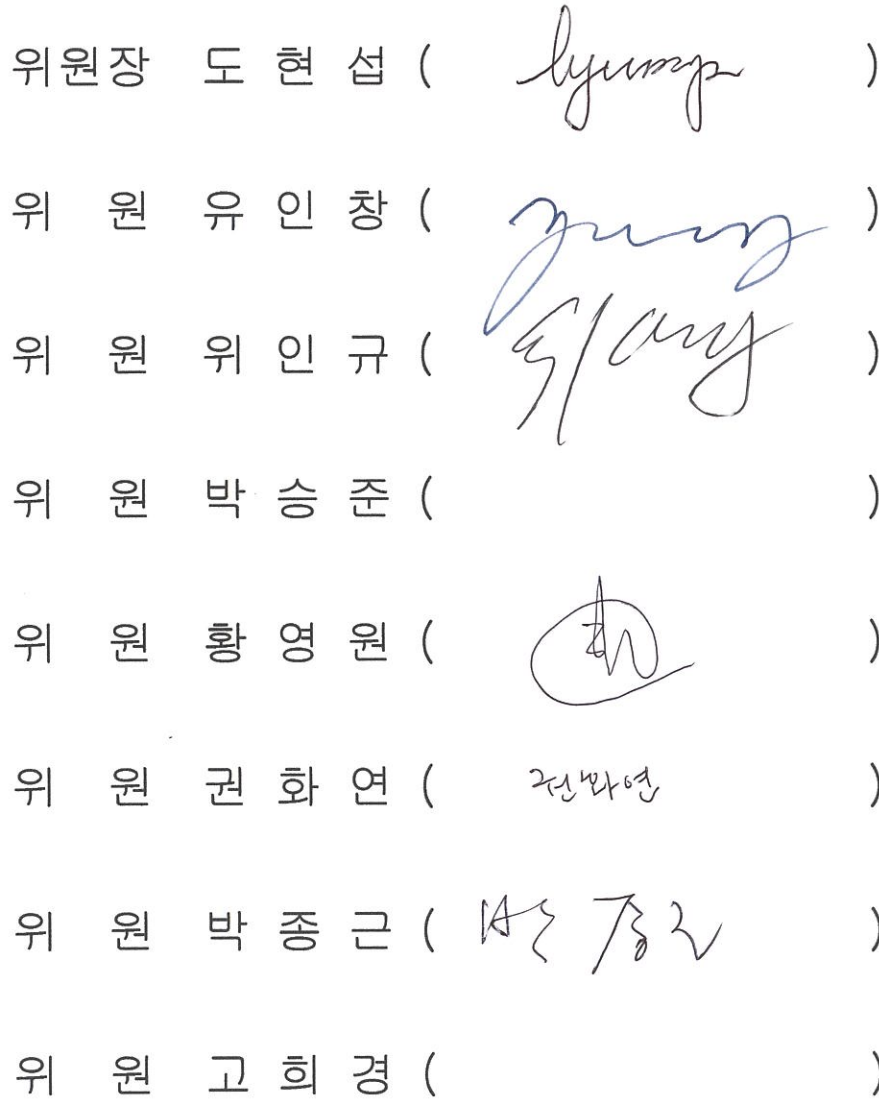 위원장 도 현 섭 ( )
위 원 유 인 창 ( )
위 원 위 인 규 ( )
위 원 박 승 준 ( )
위 원 황 영 원 ( )
위 원 권 화 연 ( 권화연 )
위 원 박 종 근 ( 박종근 )
위 원 고 희 경 ( )